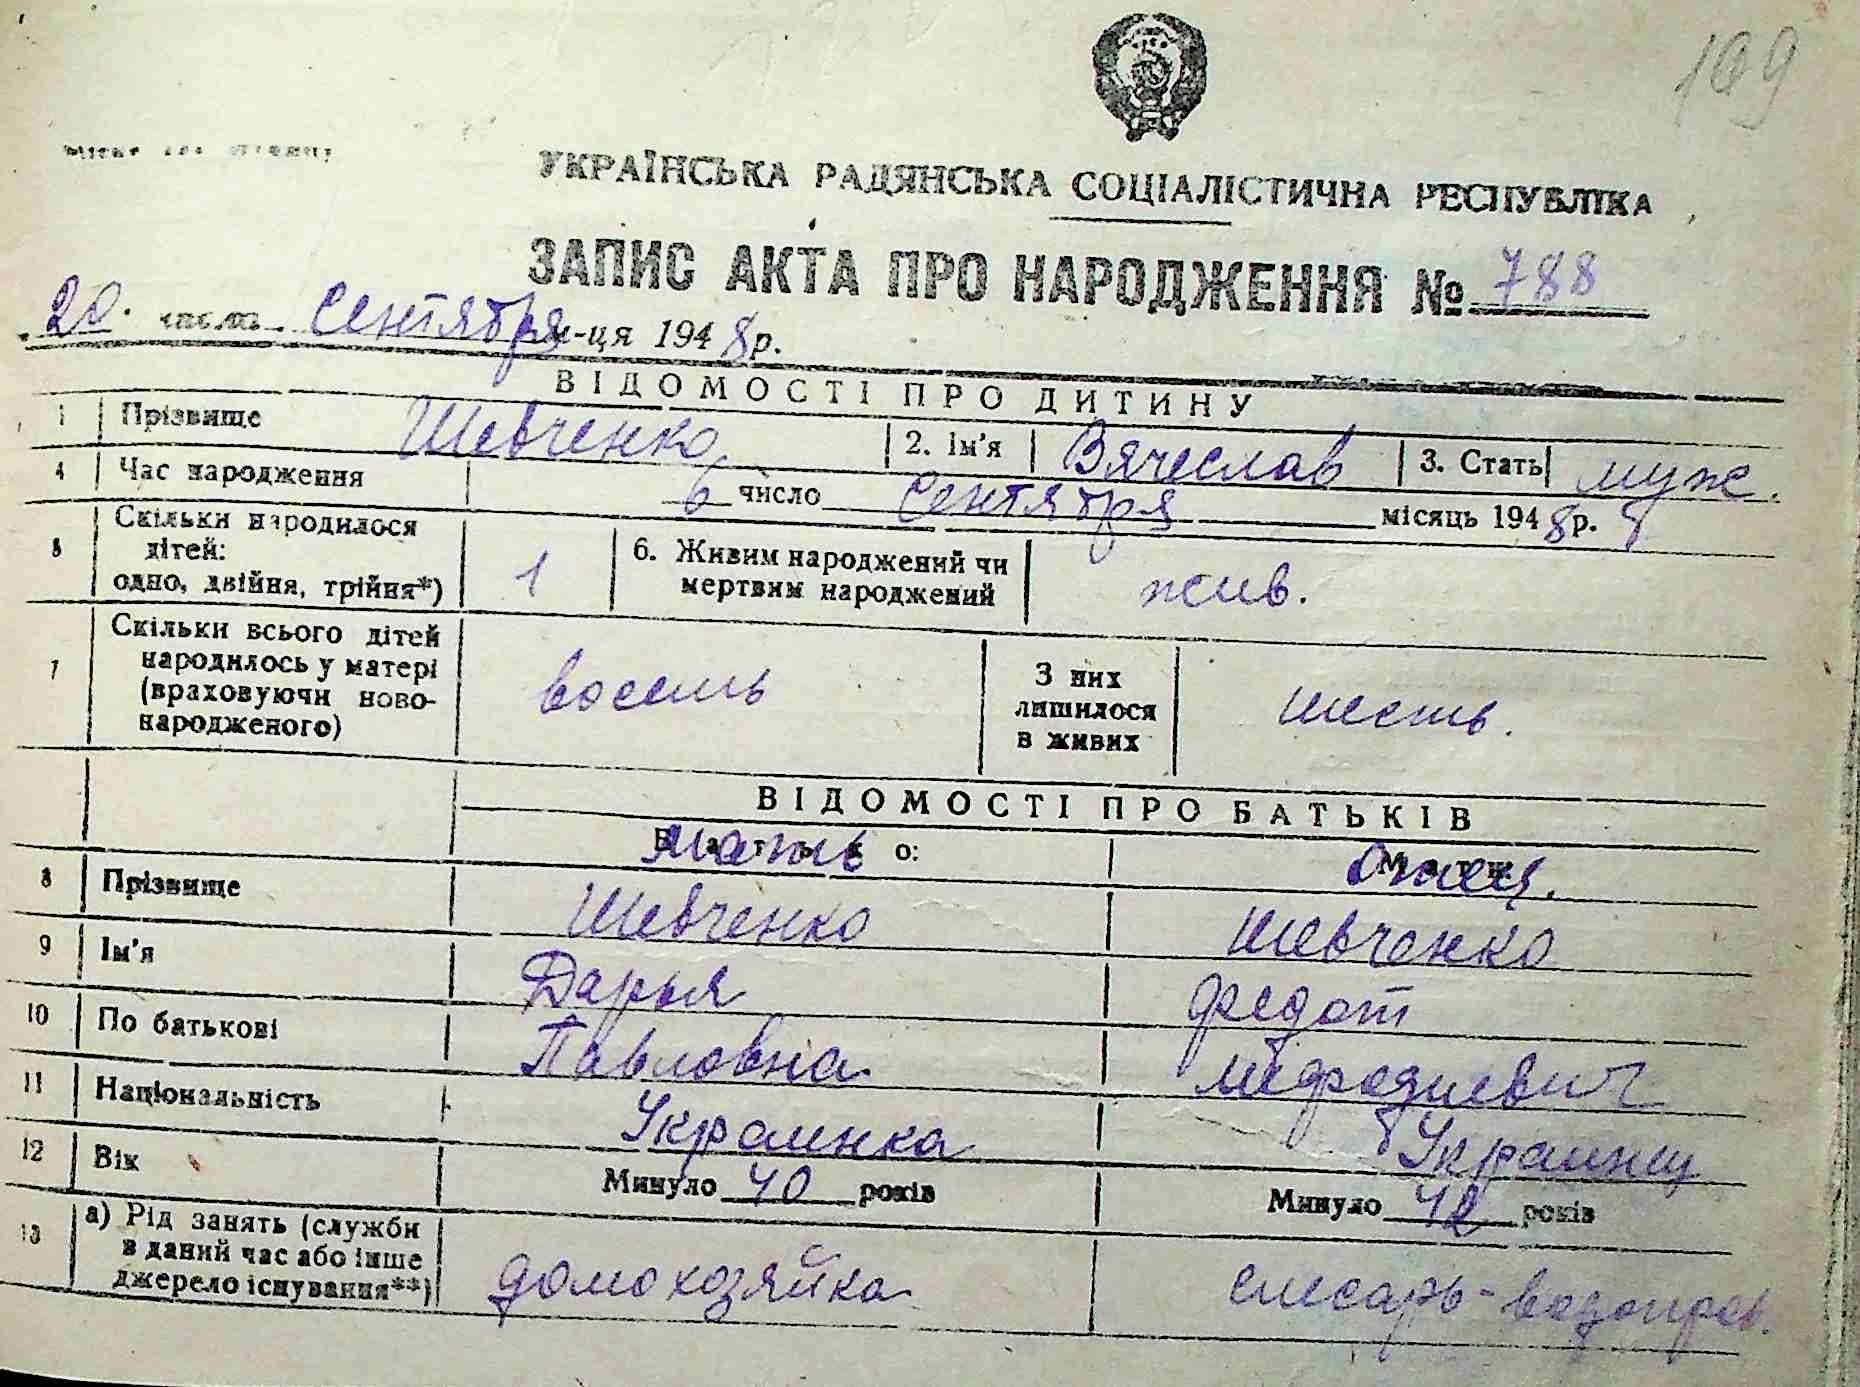 109
УКРАЇНСЬКА РАДЯНСЬКА СОЦІАЛІСТИЧНА РЕСПУБЛІКА
ЗАПИС АКТА ПРО НАРОДЖЕННЯ № 788
20 числа Сентября м-ця 1948 р.
ВІДОМОСТІ ПРО ДИТИНУ
1 Прізвище Шевченко 2. Ім'я Вячеслав 3. Стать муж.
4 Час народження 6 число Сентября місяць 1948 р.
5 Скільки народилося
дітей:
одно, двійня, трійня*) 1 6. Живим народжений чи
мертвим народжений жив.
7 Скільки всього дітей
народилось у матері
(враховуючи ново-
народженого) восемь З них
лишилося
в живих шесть.
ВІДОМОСТІ ПРО БАТЬКІВ
Батько: мать Мати: Отец.
8 Прізвище Шевченко Шевченко
9 Ім'я Дарья Федот
10 По батькові Павловна Мефодиевич
11 Національність Украинка Украинец
12 Вік Минуло 40 років Минуло 42 років
13 а) Рід занять (служби
в даний час або інше
джерело існування**) домохозяйка слесарь-водопров.